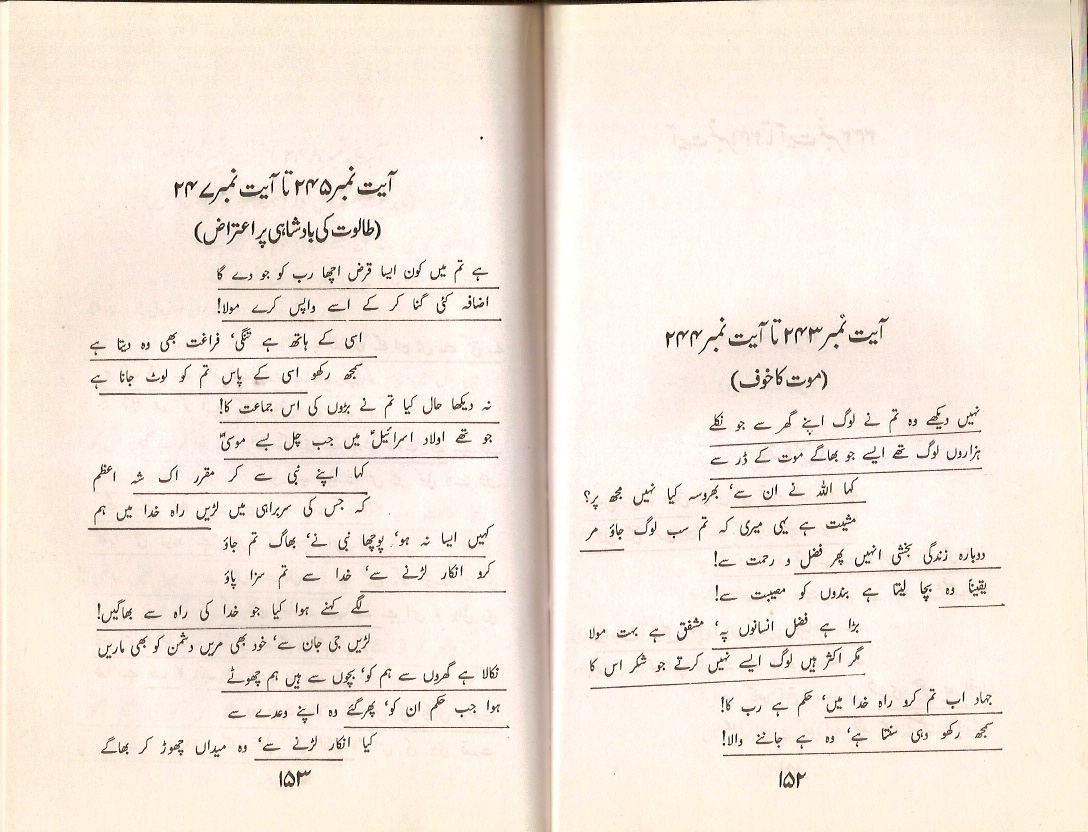 آیت نمبر ۲۴۳ تا آیت نمبر ۲۴۴
(موت کا خوف)
نہیں دیکھے وہ تم نے لوگ اپنے گھر سے جو نکلے
ہزاروں لوگ تھے ایسے جو بھاگے موت کے ڈر سے
کہا اللہ نے ان سے‘ بھروسہ کیا نہیں مجھ پر؟
مشیت ہے یہی میری کہ تم سب لوگ جاؤ مر
دوبارہ زندگی بخشی انہیں پھر فضل و رحمت سے!
یقیناً وہ بچا لیتا ہے بندوں کو مصیبت سے!
بڑا ہے فضل انسانوں پہ‘ مشفق ہے بہت مولا
مگر اکثر ہیں لوگ ایسے نہیں کرتے جو شکر اس کا
جہاد اب تم کرو راہ خدا میں‘ حکم ہے رب کا!
سمجھ رکھو وہی سنتا ہے‘ وہ ہے جاننے والا!
۱۵۲
آیت نمبر ۲۴۵ تا آیت نمبر ۲۴۷
(طالوت کی بادشاہی پر اعتراض)
ہے تم میں کون ایسا قرض اچھا رب کو جو دے گا
اضافہ کئی گنا کر کے اسے واپس کرے مولا!
اسی کے ہاتھ ہے تنگی‘ فراغت بھی وہ دیتا ہے
سمجھ رکھو اسی کے پاس تم کو لوٹ جانا ہے
نہ دیکھا حال کیا تم نے بڑوں کی اس جماعت کا!
جو تھے اولاد اسرائیلؑ میں جب چل بسے موسیٰؑ
کہا اپنے نبی سے کر مقرر اک شہ اعظم
کہ جس کی سربراہی میں لڑیں راہ خدا میں ہم
کہیں ایسا نہ ہو‘ پوچھا نبی نے‘ بھاگ تم جاؤ
کرو انکار لڑنے سے‘ خدا سے تم سزا پاؤ
لگے کہنے ہوا کیا جو خدا کی راہ سے بھاگیں!
لڑیں جی جان سے‘ خود بھی مریں دشمن کو بھی ماریں
نکالا ہے گھروں سے ہم کو‘ بچوں سے ہیں ہم چھوٹے
ہوا جب حکم ان کو‘ پھر گئے وہ اپنے وعدے سے
کیا انکار لڑنے سے‘ وہ میداں چھوڑ کر بھاگے
۱۵۳